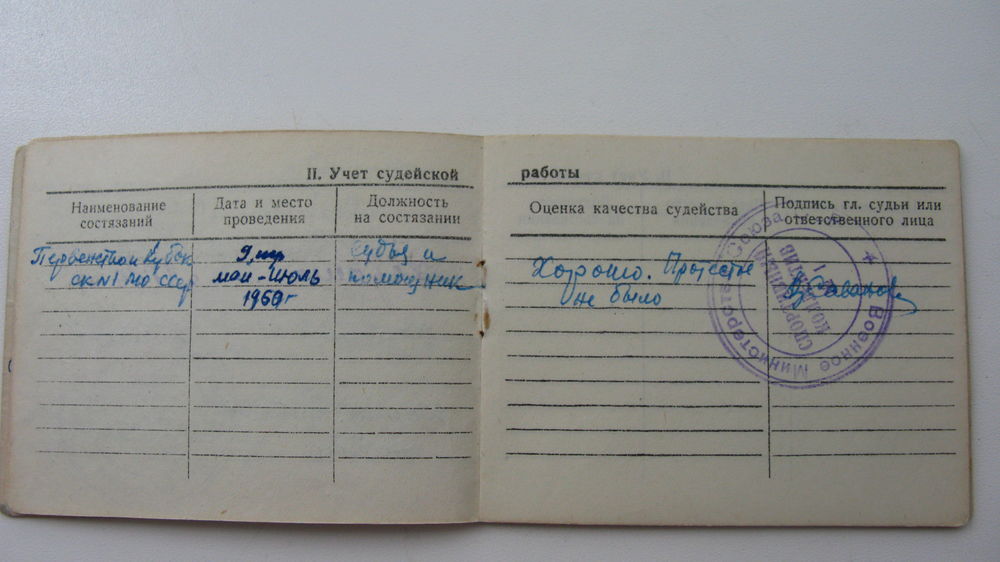 II. Учет судейской работы
Наименование состязаний
Дата и место проведения
Должность на состязании
Оценка качества судейства
Подпись гл. судьи или ответственного лица
Первенство и Кубок
СК №1 МО ССР
май - июль
1960 г
Судья и
помощник
Хорошо. Протестов
не было
Военное Министерство Союза
СПОРТИВНЫЙ